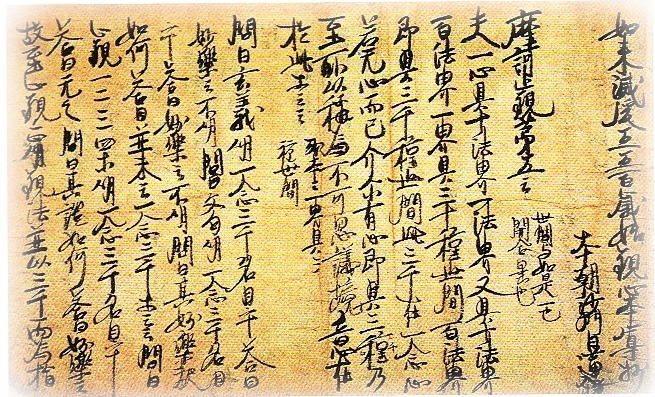 如来滅後五五百歳始観心本尊抄
本朝沙門日蓮撰
摩訶止観第五云 世間与如是一也
開合異也
夫一心具十法界一法界又具十法界
百法界一界具三十種世間百法界
即具三千種世間此三千在一念心
若无心而已介尓有心即具三千乃
至所以称為不可思議境意在
於此等云云 或本云一界具三
種世間
問曰玄義明一念三千名目乎答曰
妙楽云不明問曰文句明一念三千名目
乎答曰妙楽云不明問曰其妙楽釈
如何答曰並未云一念三千等云云問曰
止観一二三四等明一念三千名目乎
答曰无之問曰其證如何答曰妙楽云
故至止観正明観法並以三千而為指